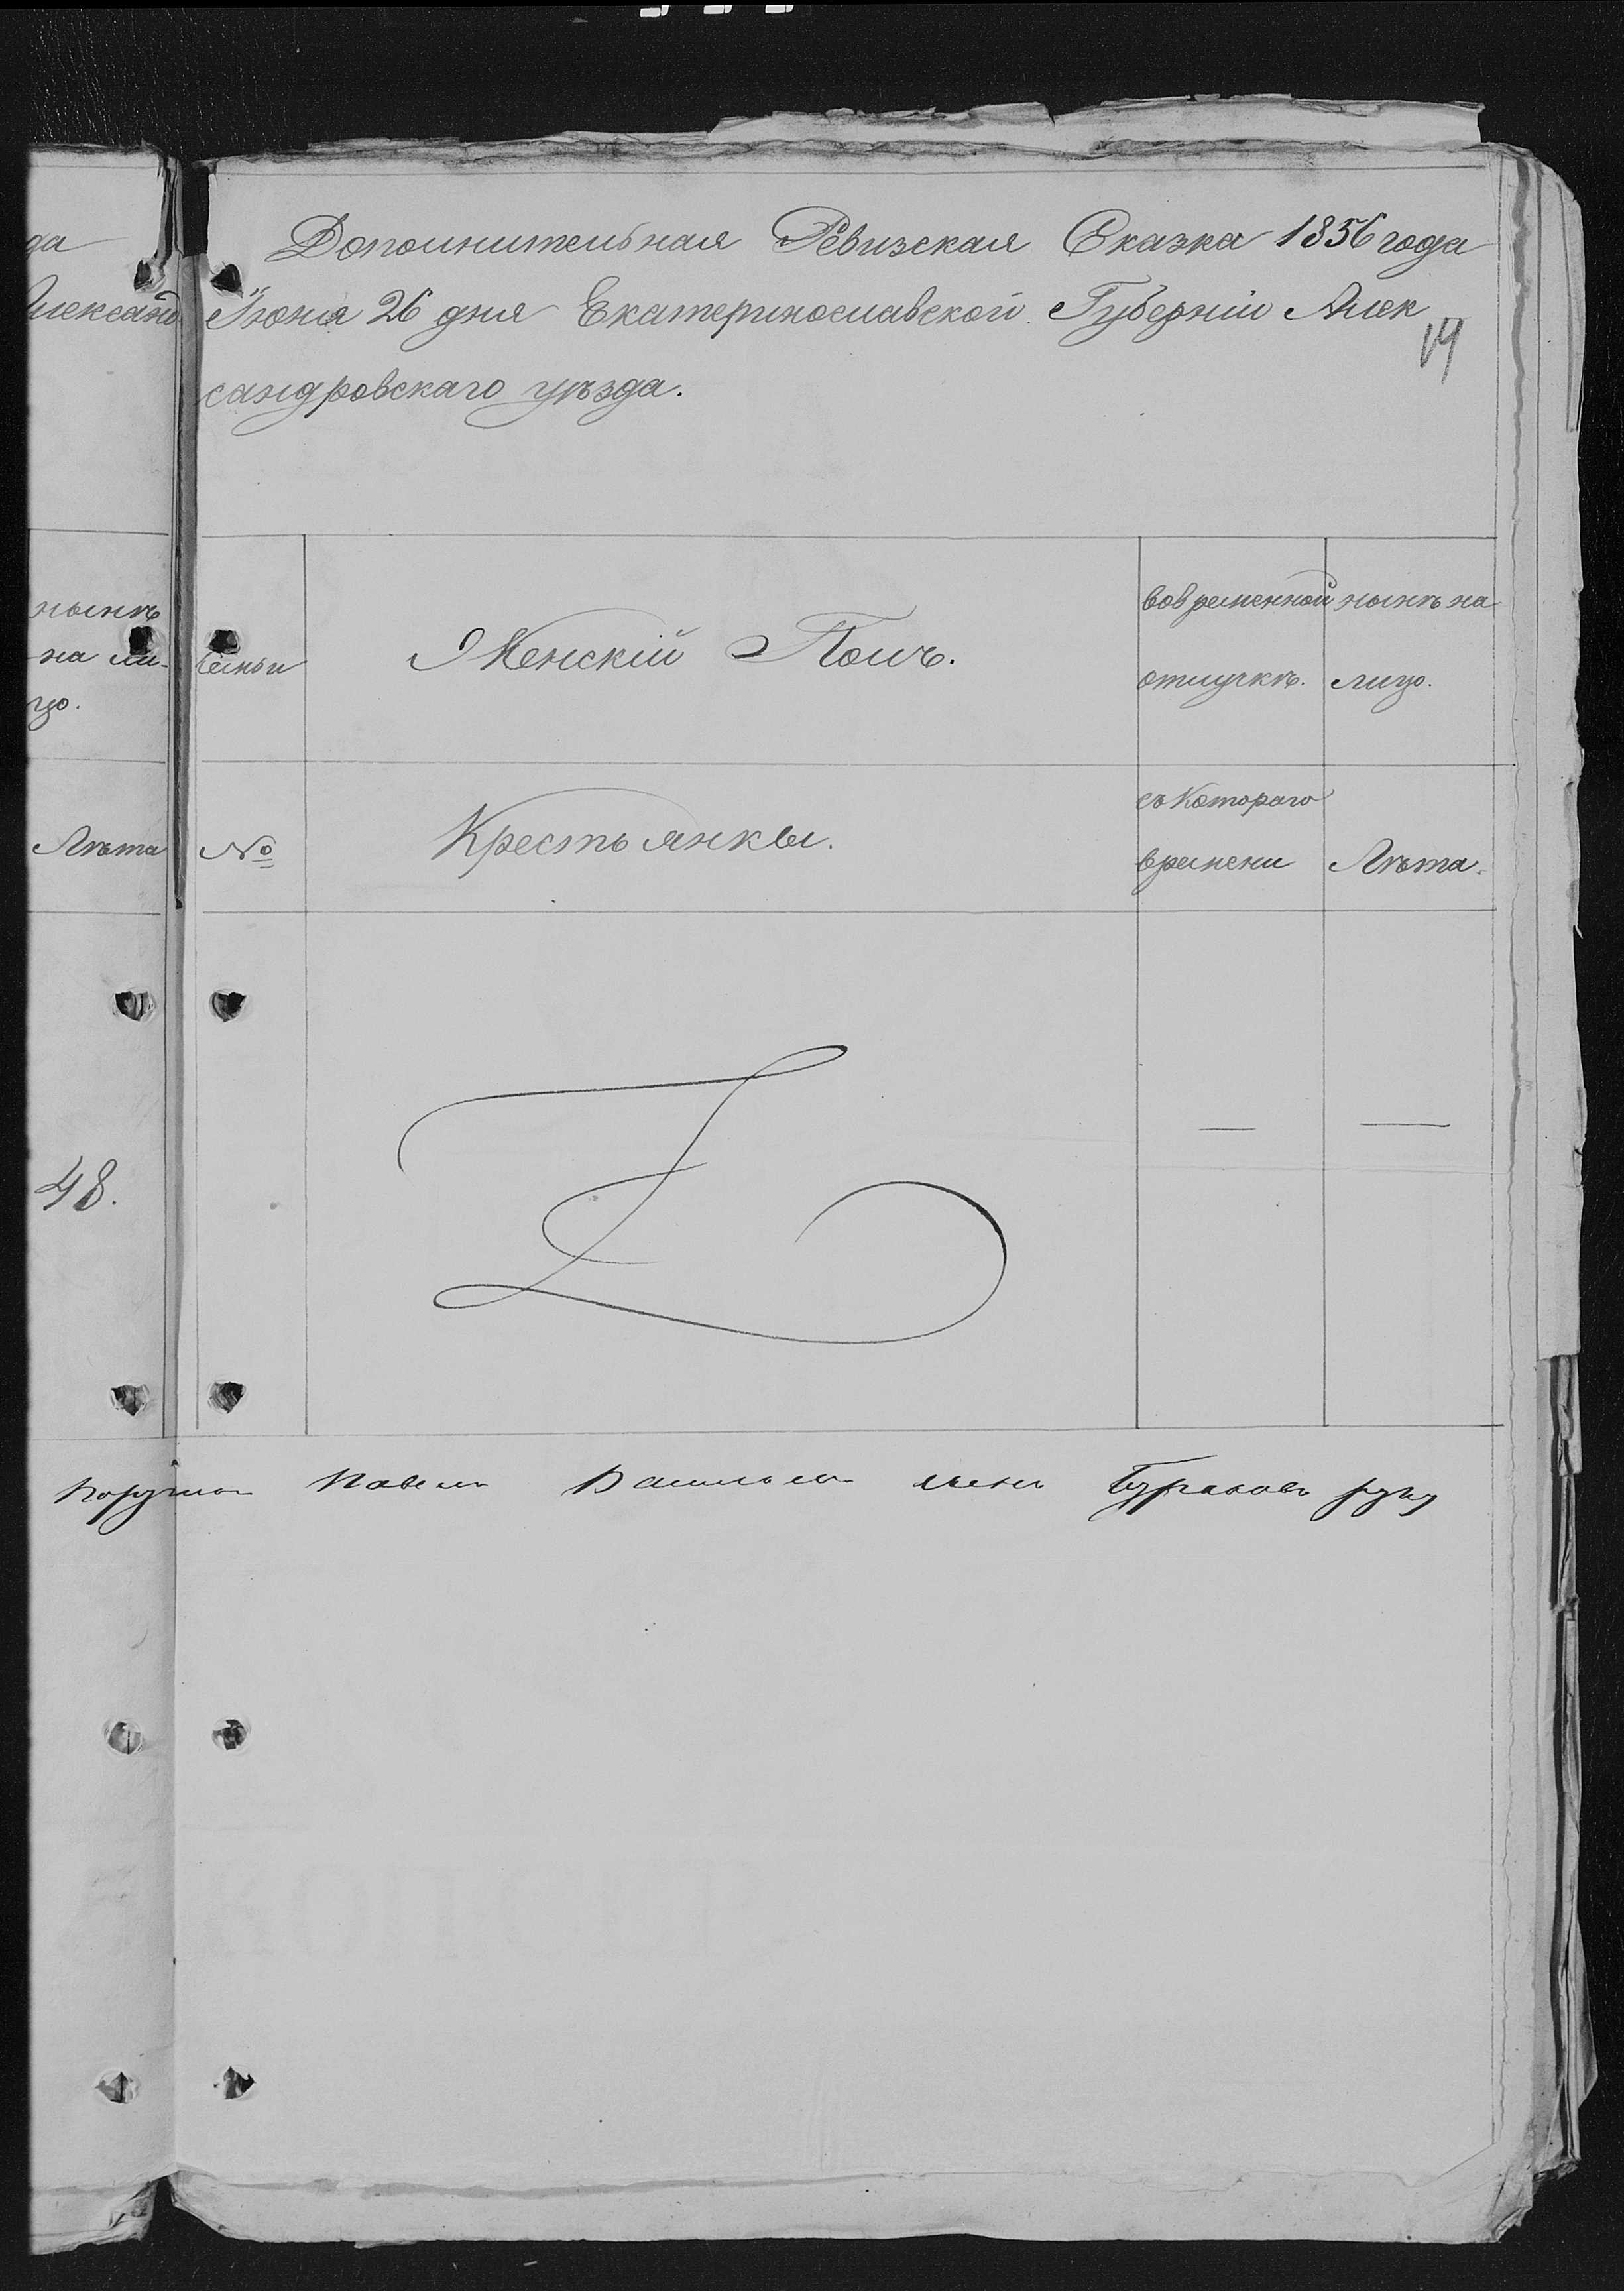 да
Александ
нынѣ
на ли-
цо.
Лѣта
48.
Дополнительная Ревизская Сказка 1856 года
Іюня 26 дня Екатеринославской Губерніи Алек
19
сандровскаго уѣзда.
Семьи
Женскій Полъ.
вовременной
отлучкѣ.
нынѣ на
лицо.
№
Крестьянки.
съ Котораго
времени
Лѣта.
— —
Павелъ Бураковъ руку